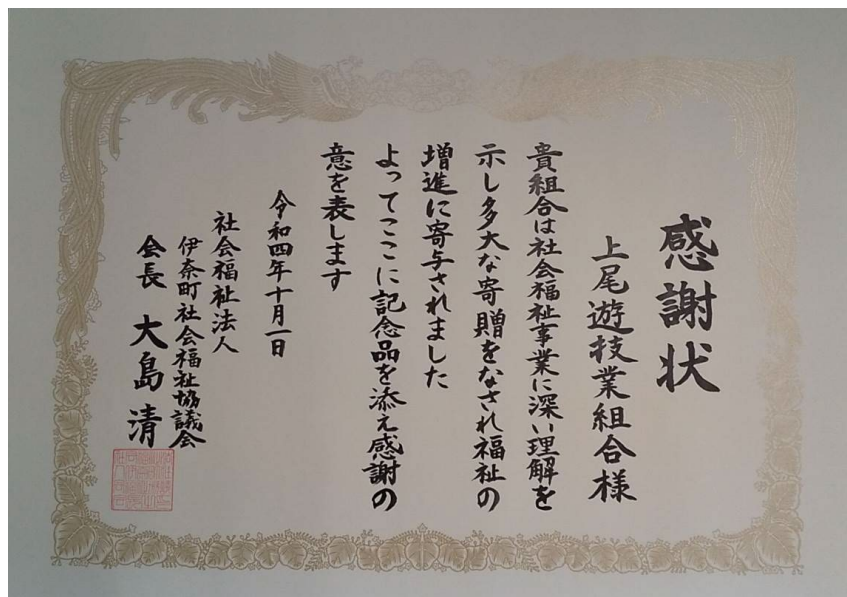 感謝状
上尾遊技業組合様
貴組合は社会福祉事業に深い理解を
示し多大な寄贈をなされ福祉の
増進に寄与されました
よってここに記念品を添え感謝の
意を表します
令和四年十月一日
社会福祉法人
伊奈町社会福祉協議会
会長 大島 清